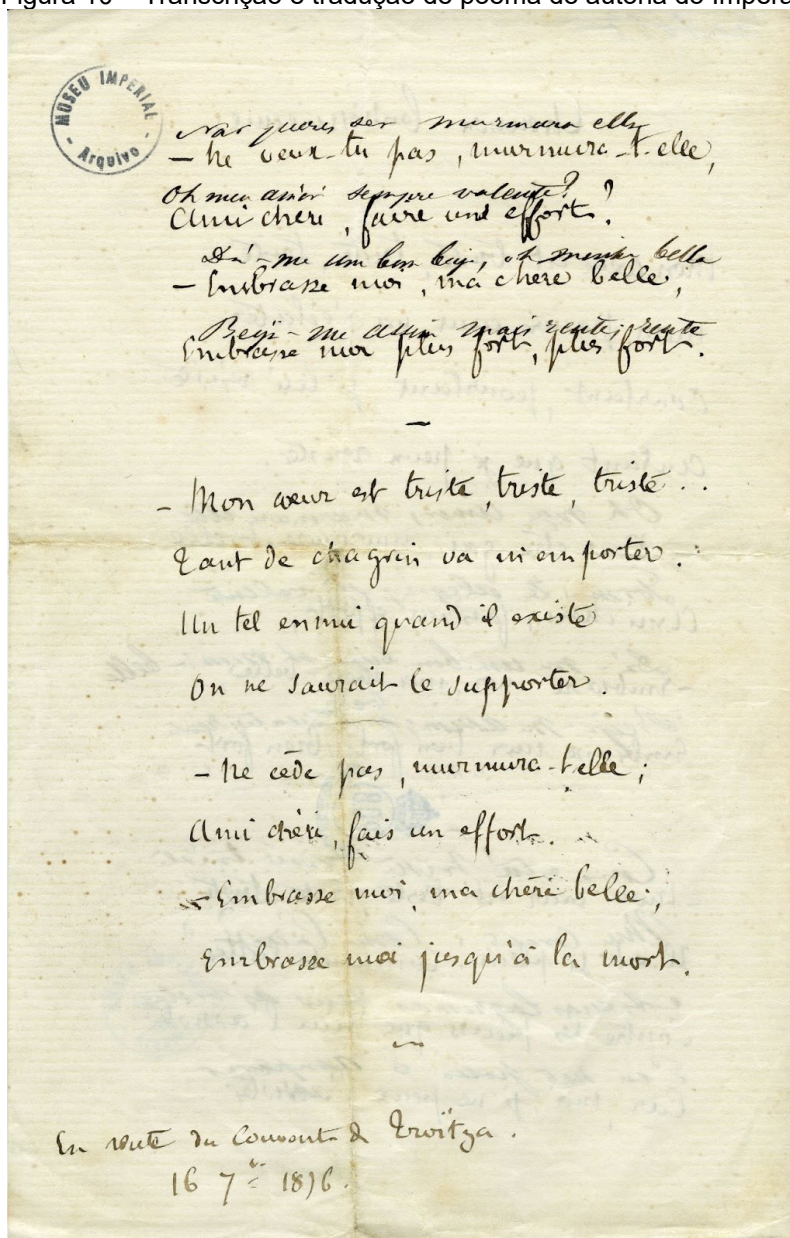 Figura 10 – Transcrição e tradução de poema de autoria do Impera
MUSEU IMPERIAL
- Arquivo -
Nao queres ser murmura ella
– Ne veux-tu pas, murmura-t-elle,
Oh meu amôr sempre valente?
Ami chéri, faire une effort?
Dá-me um bom beijo, oh minha bella
– Embrasse moi, ma chère belle,
Beija-me assim mais rente, rente
Embrasse moi plus fort, plus fort.
–
– Mon cœur est triste, triste, triste..
Tant de chagrin va m'emporter.
Un tel ennui quand il existe
On ne saurait le supporter.
– Ne cède pas, murmura-t-elle;
Ami chéri, fais un effort.
– Embrasse moi, ma chéri belle,
Embrasse moi jusqu'à la mort.
En route du Couvent de Troïtza.
16 7bre 1876.